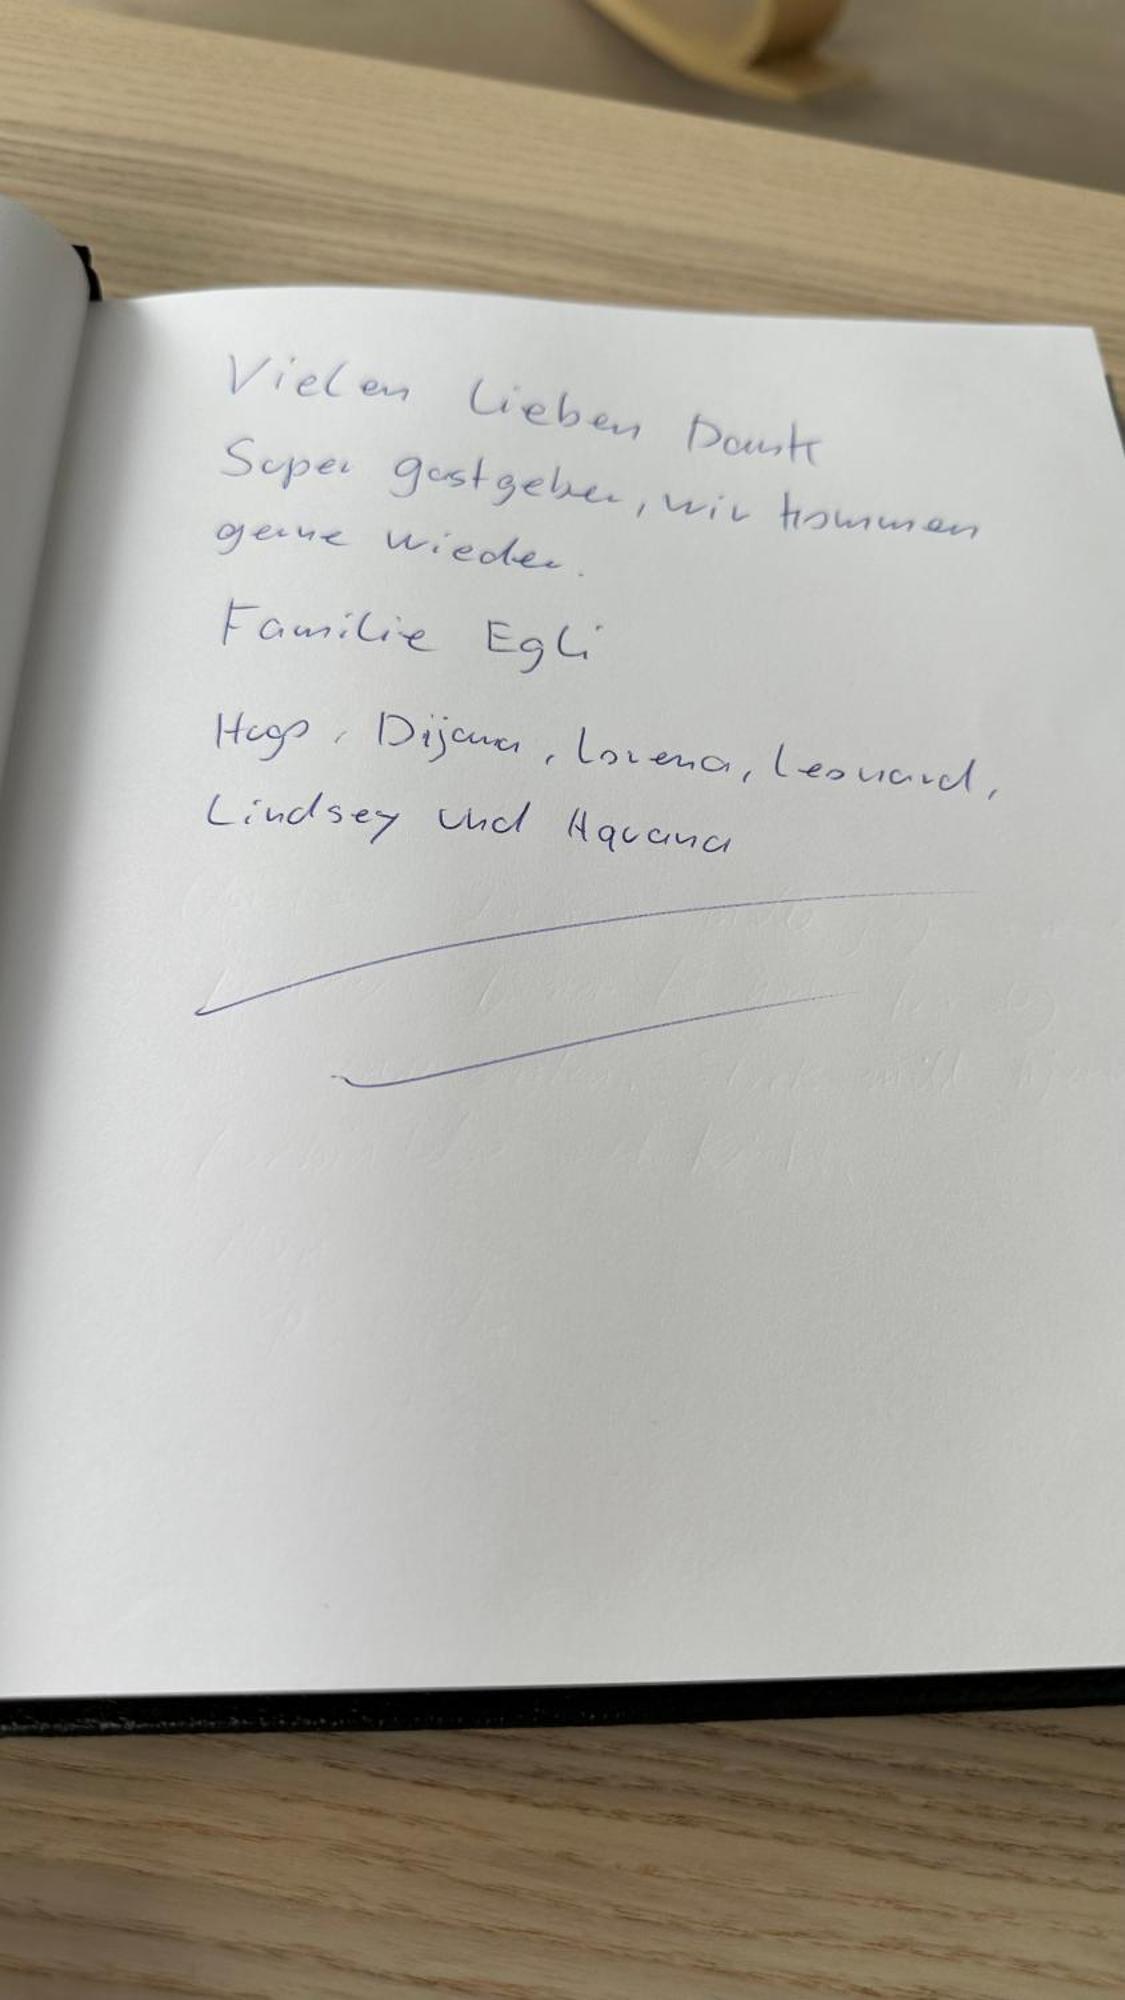 Vielen Lieben Dank
Super gastgeber, wir kommen
gerne wieder.
Familie Egli
Hugo, Dijana, Lorena, Leonard,
Lindsey und Havana